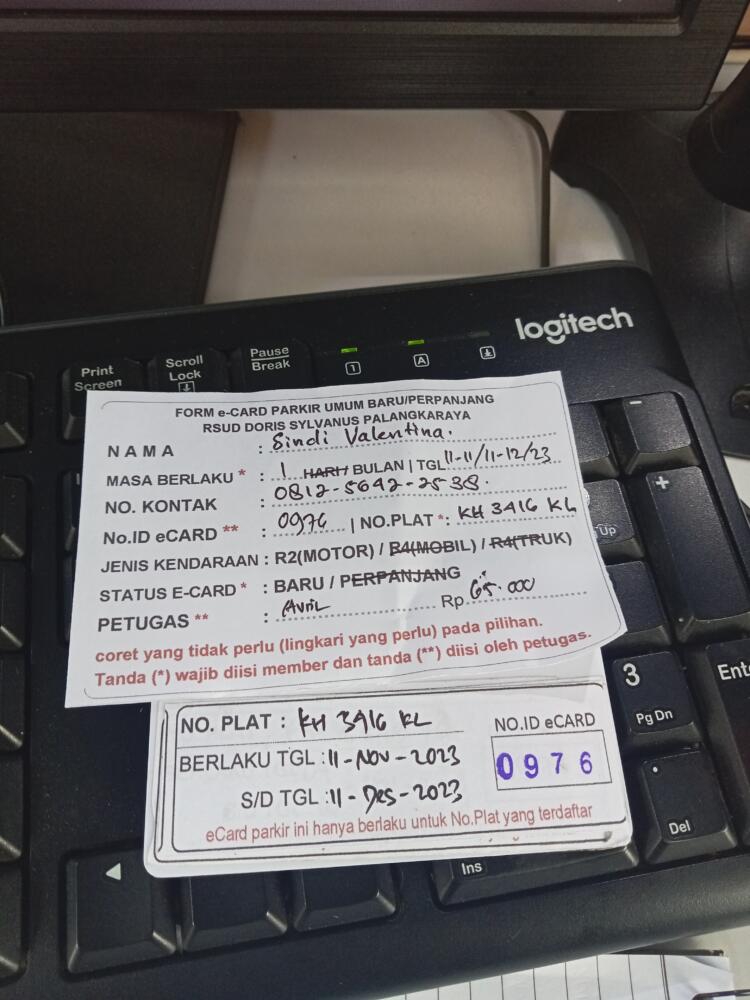 logitech
Print Screen
Scroll Lock
Pause Break
1
A
FORM e-CARD PARKIR UMUM BARU/PERPANJANG
RSUD DORIS SYLVANUS PALANGKARAYA
NAMA : Sindi Valentina.
MASA BERLAKU * : 1 HARI/ BULAN | TGL 11-11/11-12/23
NO. KONTAK : 0812-5642-2538.
No.ID eCARD ** : 0976 | NO.PLAT *: KH 3416 KL
JENIS KENDARAAN : R2(MOTOR) / R4(MOBIL) / R4(TRUK)
STATUS E-CARD * : BARU / PERPANJANG
PETUGAS ** : Avril Rp 65.000
coret yang tidak perlu (lingkari yang perlu) pada pilihan.
Tanda (*) wajib diisi member dan tanda (**) diisi oleh petugas.
NO. PLAT : KH 3416 KL
NO.ID eCARD
BERLAKU TGL : 11-Nov-2023
0976
S/D TGL : 11-Des-2023
eCard parkir ini hanya berlaku untuk No.Plat yang terdaftar
-
+
Up
3
Pg Dn
Ent
.
Del
Ins